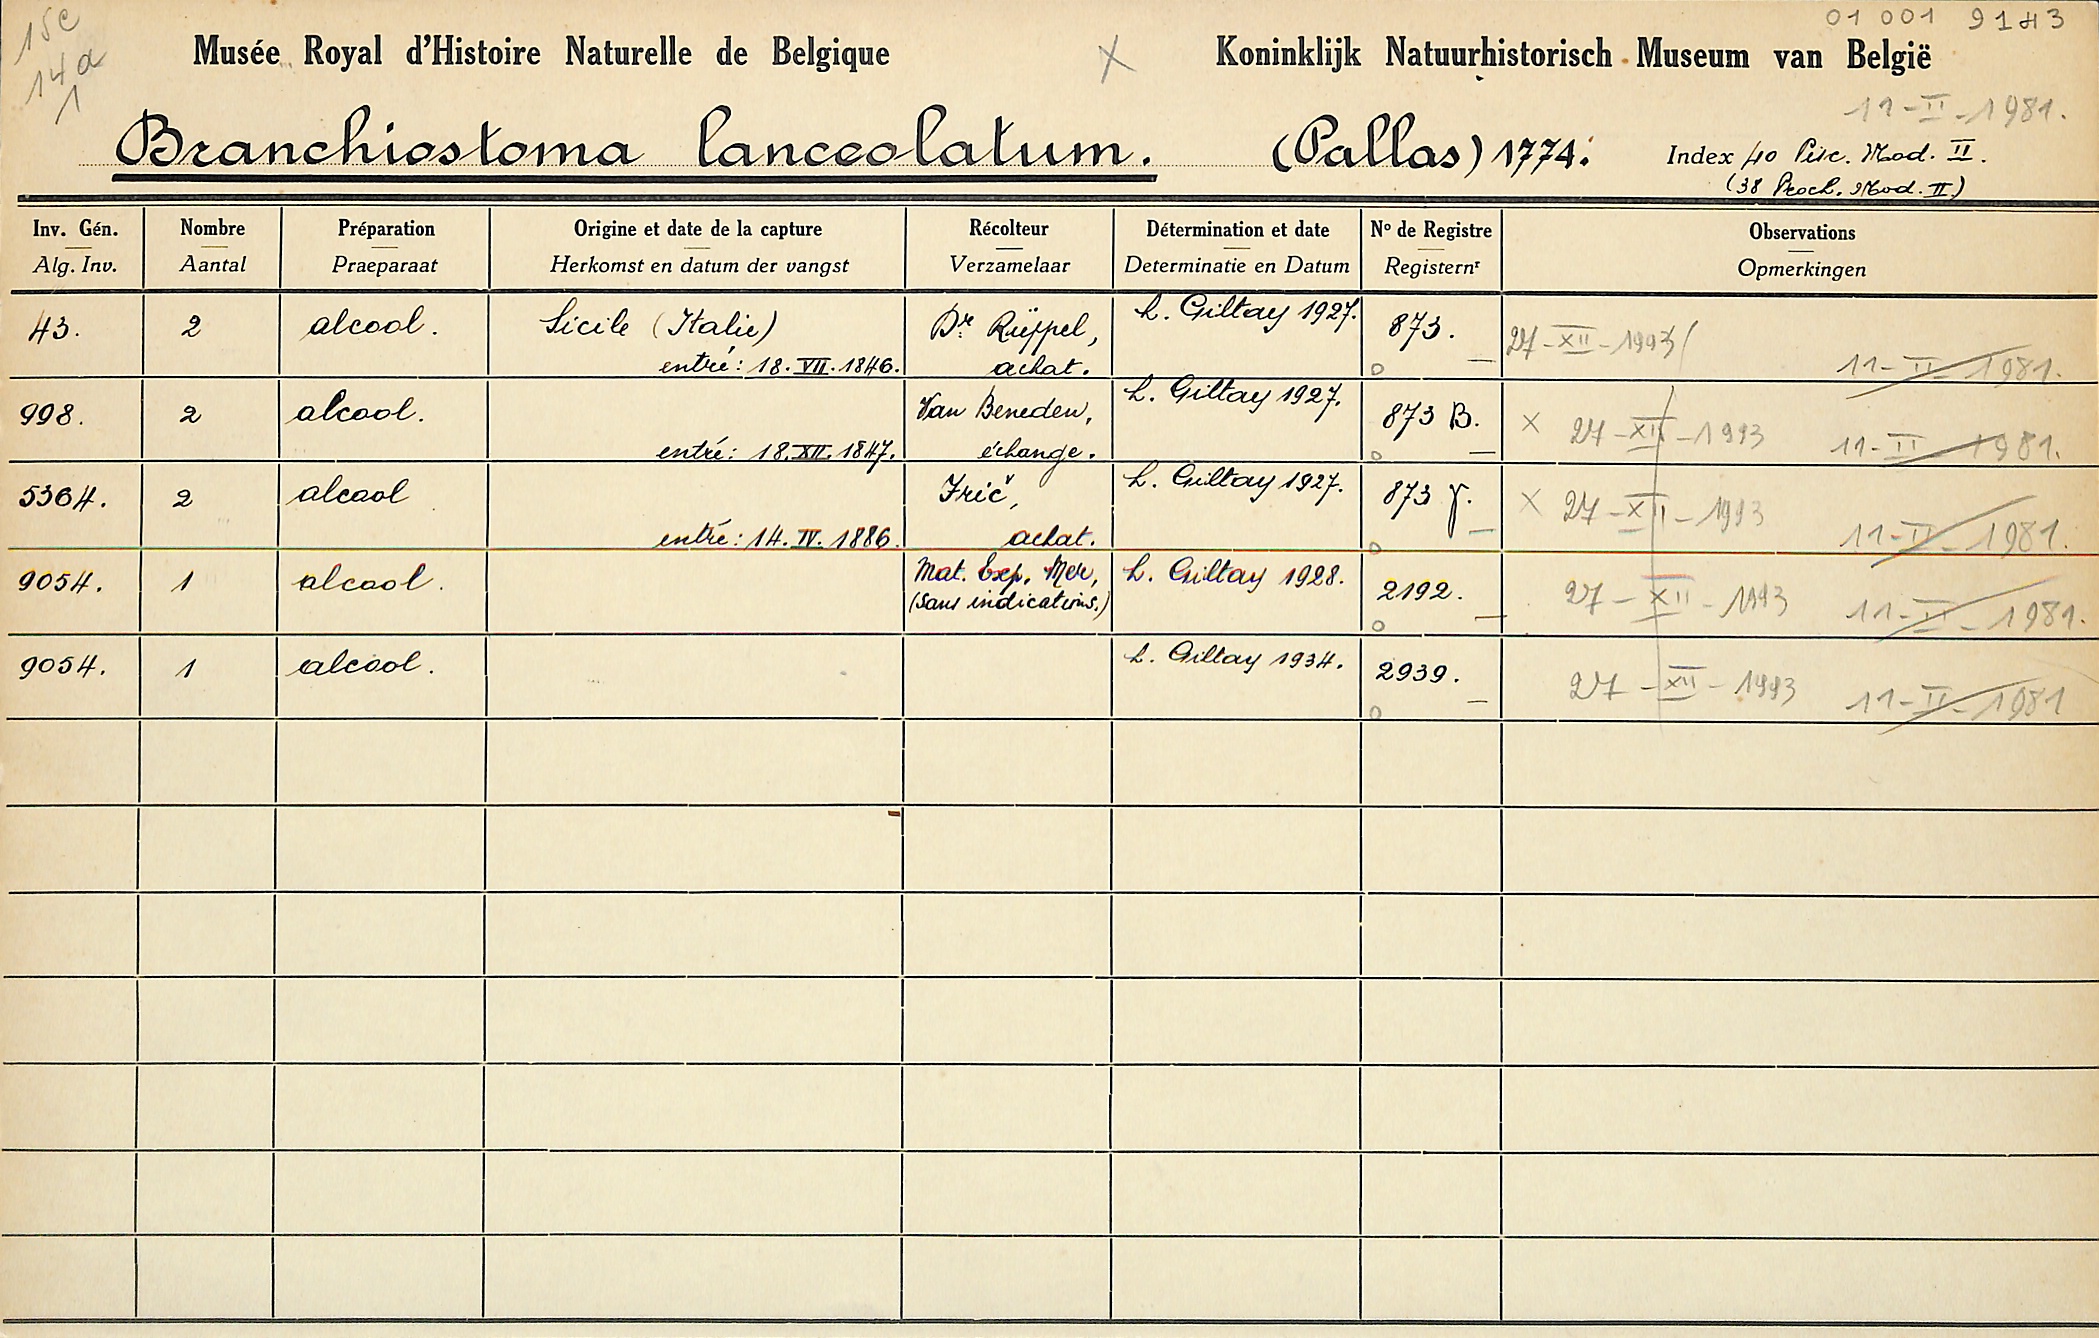 15c
14a
1
01 001 9143
Musée Royal d'Histoire Naturelle de Belgique X Koninklijk Natuurhistorisch Museum van België
11-II-1981.
Branchiostoma lanceolatum. (Pallas) 1774. Index 40 Pisc. Mod. II.
(38 Proch. Mod. II)
Inv. Gén. Nombre Préparation Origine et date de la capture Récolteur Détermination et date Nº de Registre Observations
Alg. Inv. Aantal Praeparaat Herkomst en datum der vangst Verzamelaar Determinatie en Datum Registernr Opmerkingen
43. 2 alcool. Sicile (Italie) Dr Rüppel, L. Giltay 1927. 873. 27-XII-1993
entré: 18.VII.1846. achat. 11-II-1981.
998. 2 alcool. Van Beneden, L. Giltay 1927. 873 B. X 27-XII-1993 11-II-1981.
entré: 18.XII.1847. échange.
5364. 2 alcool Frič, L. Giltay 1927. 873 γ. X 27-XII-1993
entré: 14.IV.1886. achat. 11-II-1981.
9054. 1 alcool. Mat. Exp. Mer, L. Giltay 1928. 2192. 27-XII-1993 11-II-1981.
(Sans indications.)
9054. 1 alcool. L. Giltay 1934. 2939. 27-XII-1993 11-II-1981